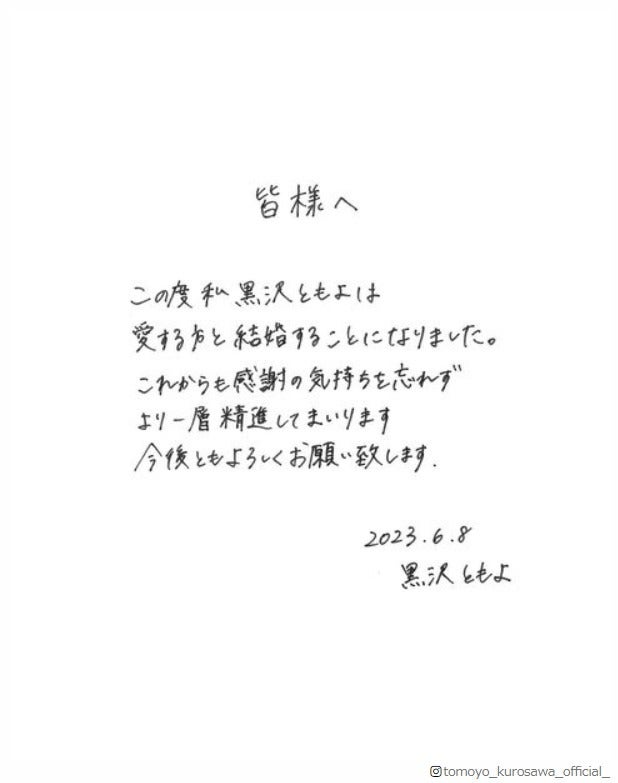 皆様へ
この度私黒沢ともよは
愛する方と結婚することになりました。
これからも感謝の気持ちを忘れず
より一層精進してまいります
今後ともよろしくお願い致します.
2023.6.8
黒沢ともよ
tomoyo_kurosawa_official_